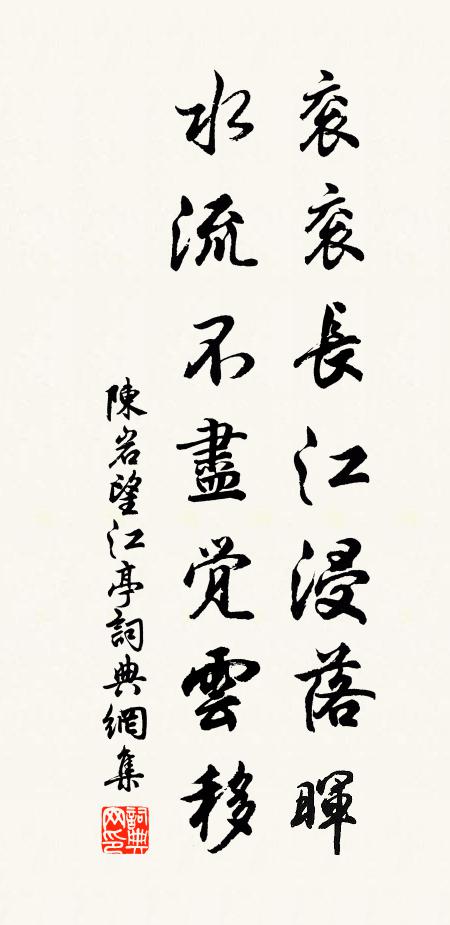 衮衮長江浸落暉
水流不盡覺雲移
陳岩望江亭詞典網集
詞典网印